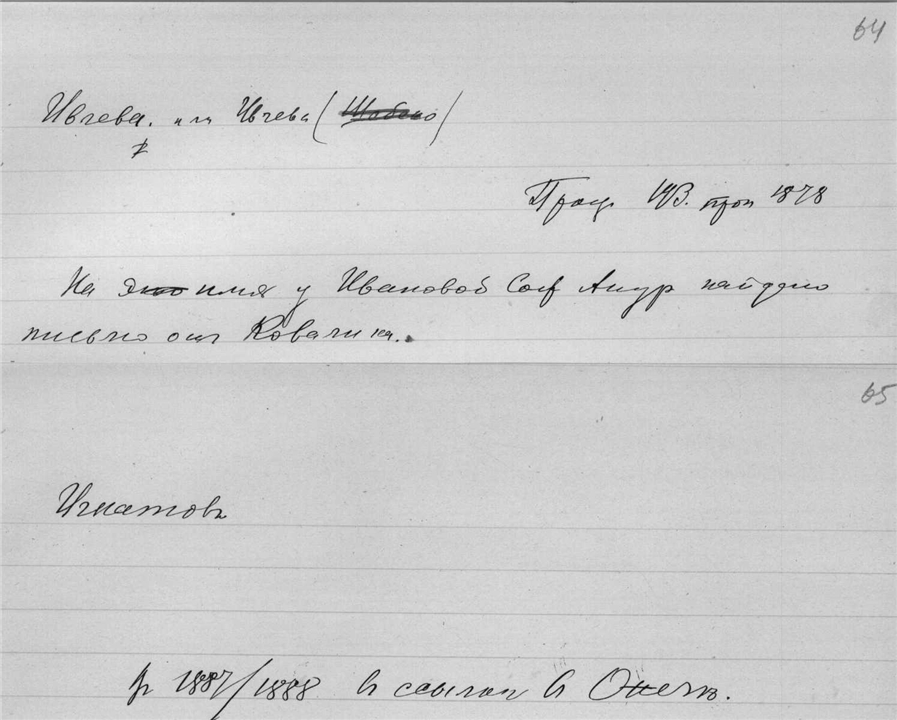 64
Ивчева. или Ивчева (
Проц. 193. троп 1878
На это имя у Ивановой Соф Андр найдено
письмо от Ковалика.
65
Игнатовъ
в 1887/1888 в ссылки в Онегѣ.